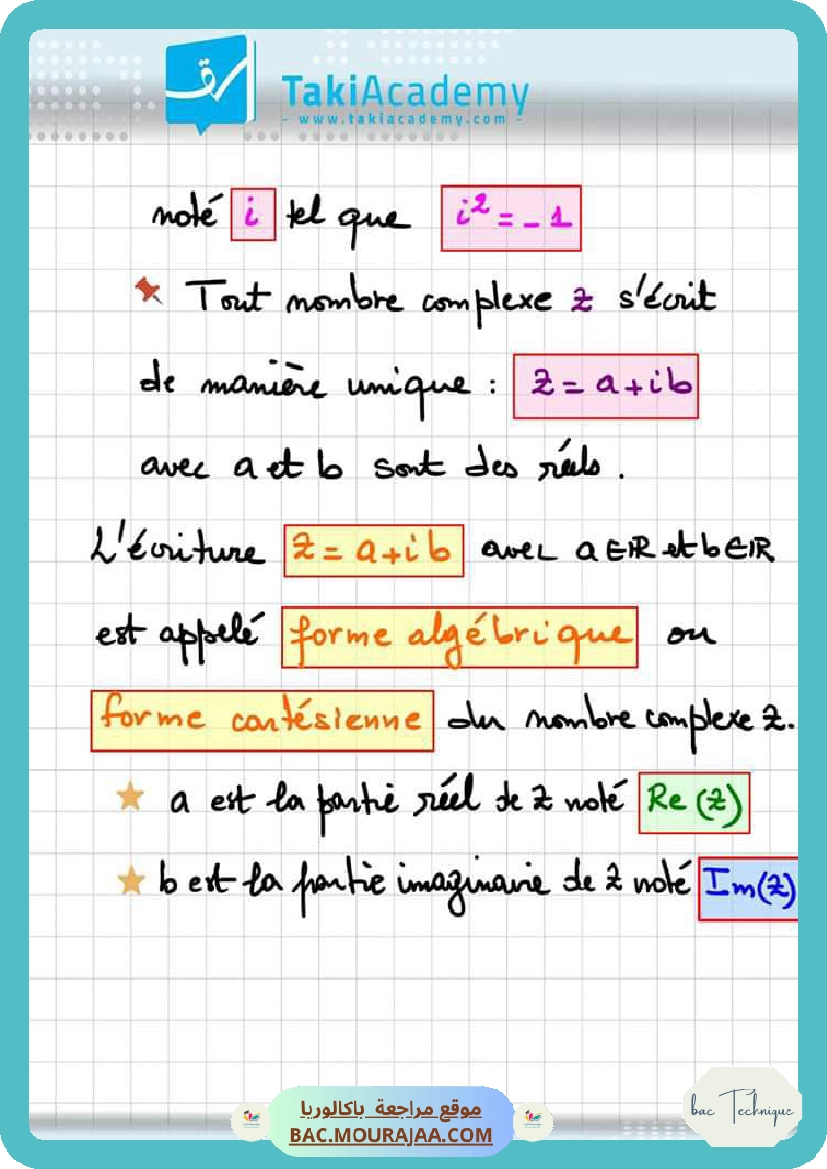 TakiAcademy
- www.takiacademy.com -
noté i tel que i² = - 1
Tout nombre complexe z s'écrit
de manière unique : z = a + ib
avec a et b sont des réels .
L'écriture z = a + ib avec a ∈ IR et b ∈ IR
est appelé forme algébrique ou
forme cartésienne du nombre complexe z.
a est la partie réel de z noté Re (z)
b est la partie imaginaire de z noté Im(z)
موقع مراجعة باكالوريا
BAC.MOURAJAA.COM
bac Technique